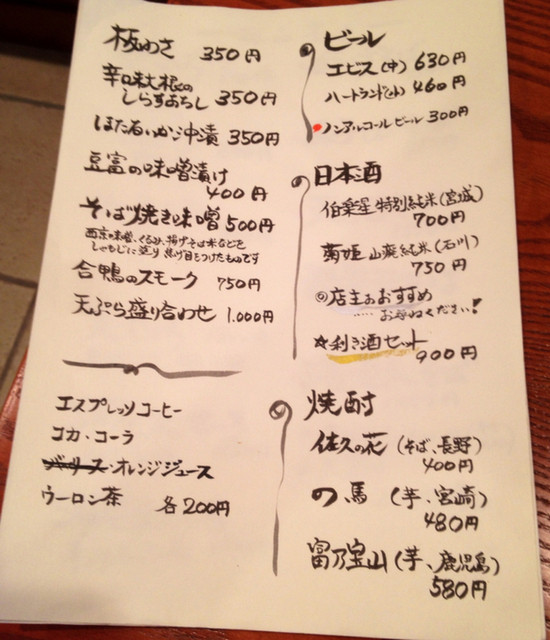 板わさ 350円
辛味大根の
しらすおろし 350円
ほたるいか沖漬 350円
豆富の味噌漬け
400円
そば焼き味噌 500円
西京味噌、くるみ、揚げそば米などを
しゃもじに塗り 焦げ目をつけたものです
合鴨のスモーク 750円
天ぷら盛り合わせ 1.000円
エスプレッソコーヒー
コカ・コーラ
オレンジジュース
ウーロン茶 各200円
ビール
エビス(中) 630円
ハートランド(小) 460円
ノンアルコールビール 300円
日本酒
伯楽星 特別純米(宮城)
700円
菊姫 山廃純米(石川)
750円
◎店主のおすすめ
‥‥ お尋ねください!
☆利き酒セット
900円
焼酎
佐久の花 (そば、長野)
400円
の馬 (芋、宮崎)
480円
富乃宝山 (芋、鹿児島)
580円